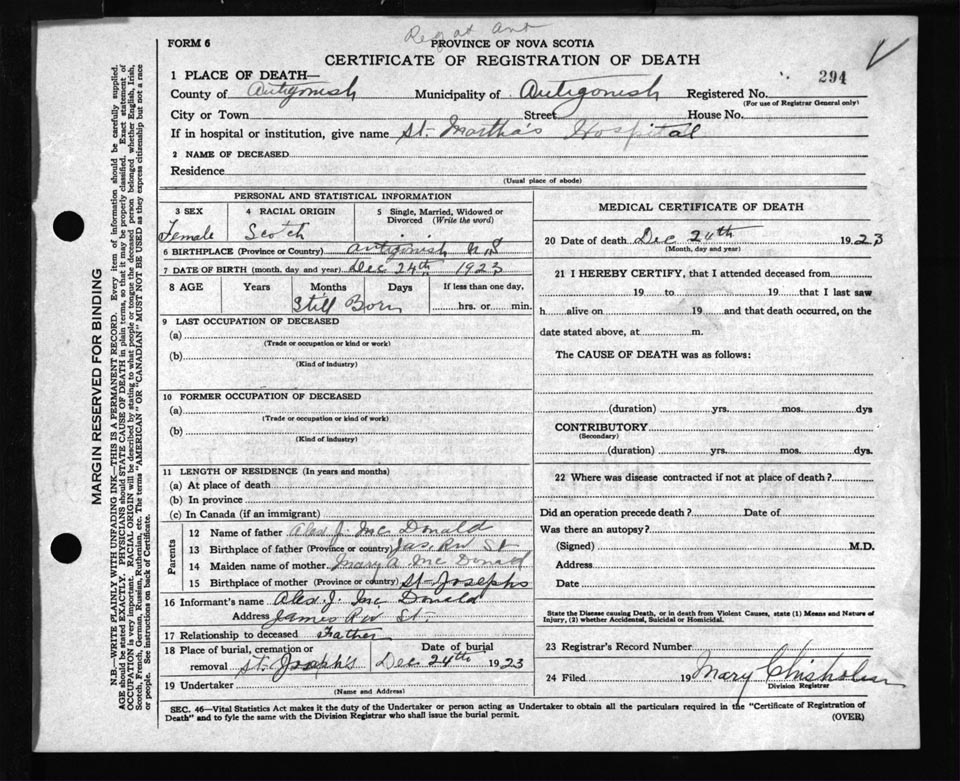 Reg at Ant
FORM 6
PROVINCE OF NOVA SCOTIA
CERTIFICATE OF REGISTRATION OF DEATH
294
1 PLACE OF DEATH—
County of Antigonish Municipality of Antigonish Registered No.
(For use of Registrar General only)
City or Town Street House No.
If in hospital or institution, give name St. Martha's Hospital
2 NAME OF DECEASED
Residence
(Usual place of abode)
PERSONAL AND STATISTICAL INFORMATION
3 SEX 4 RACIAL ORIGIN 5 Single, Married, Widowed or
Divorced (Write the word)
Female Scotch
6 BIRTHPLACE (Province or Country) Antigonish N S
7 DATE OF BIRTH (month, day and year) Dec 24th 1923
8 AGE Years Months Days If less than one day,
Still Born hrs. or min.
9 LAST OCCUPATION OF DECEASED
(a)
(Trade or occupation or kind or work)
(b)
(Kind of industry)
10 FORMER OCCUPATION OF DECEASED
(a)
(Trade or occupation or kind of work)
(b)
(Kind of industry)
11 LENGTH OF RESIDENCE (In years and months)
(a) At place of death
(b) In province
(c) In Canada (if an immigrant)
Parents
12 Name of father Alex J. Mc Donald
13 Birthplace of father (Province or country) Jas. Rw St
14 Maiden name of mother Mary A Mc Donald
15 Birthplace of mother (Province or country) St. Josephs
16 Informant's name Alex J. Mc Donald
Address James Rw St.
17 Relationship to deceased Father
18 Place of burial, cremation or Date of burial
removal St. Joseph's Dec 24th 1923
19 Undertaker
(Name and Address)
MEDICAL CERTIFICATE OF DEATH
20 Date of death Dec 24th 1923
(Month, day and year)
21 I HEREBY CERTIFY, that I attended deceased from
19 to 19 that I last saw
h alive on 19 and that death occurred, on the
date stated above, at m.
The CAUSE OF DEATH was as follows:
(duration) yrs. mos. dys
CONTRIBUTORY
(Secondary)
(duration) yrs. mos. dys.
22 Where was disease contracted if not at place of death?
Did an operation precede death? Date of
Was there an autopsy?
(Signed) M.D.
Address
Date
State the Disease causing Death, or in death from Violent Causes, state (1) Means and Nature of
Injury, (2) whether Accidental, Suicidal or Homicidal.
23 Registrar's Record Number
24 Filed 19 Mary Chisholm
Division Registrar
SEC. 46—Vital Statistics Act makes it the duty of the Undertaker or person acting as Undertaker to obtain all the particulars required in the "Certificate of Registration of
Death" and to fyle the same with the Division Registrar who shall issue the burial permit.
(OVER)
MARGIN RESERVED FOR BINDING
N.B.—WRITE PLAINLY WITH UNFADING INK—THIS IS A PERMANENT RECORD. Every item of information should be carefully supplied.
AGE should be stated EXACTLY. PHYSICIANS should STATE CAUSE OF DEATH in plain terms, so that it may be properly classified. Exact statement of
OCCUPATION is very important. RACIAL ORIGIN will be described by stating to what people or tongue the deceased person belonged whether English, Irish,
Scotch, French, German, Russian, Ruthenian, etc. The terms "AMERICAN" OR "CANADIAN" MUST NOT BE USED as they express citizenship but not a race
or people. See instructions on back of Certificate.